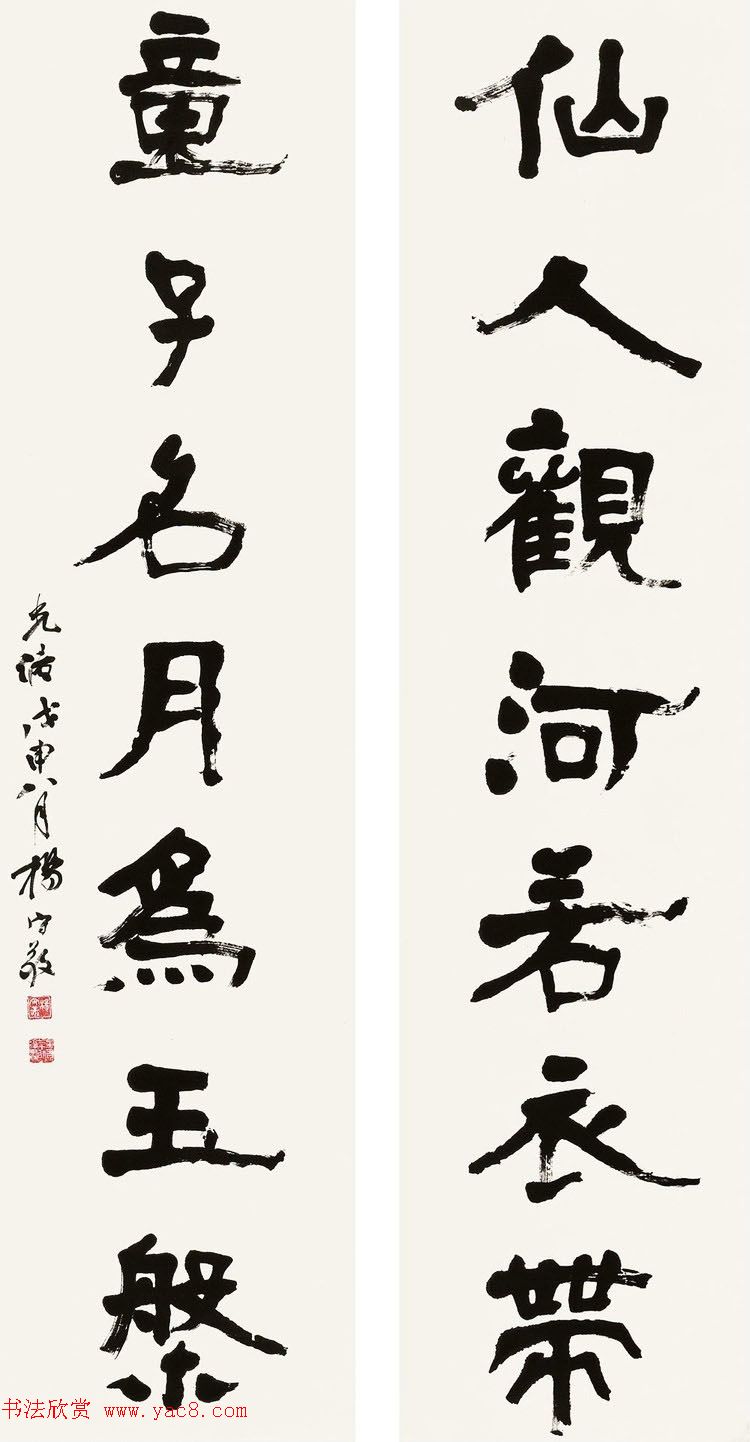 仙人觀河若衣帶
童子名月爲玉槃
光緒戊申八月楊守敬
书法欣赏 www.yac8.com